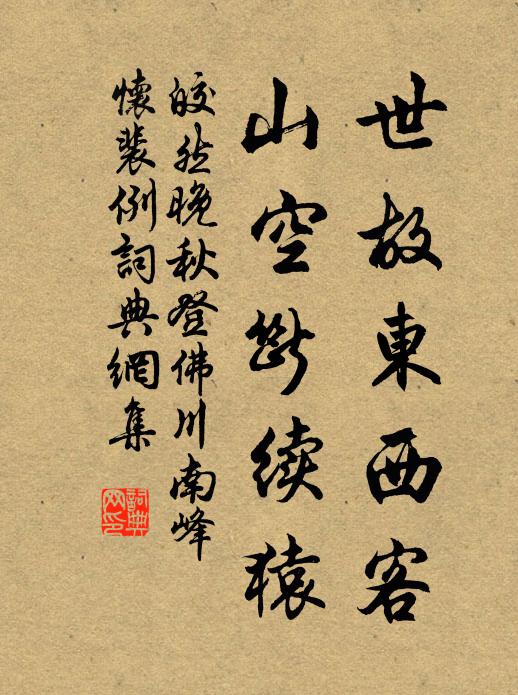 世故東西客
山空斷续猿
皎然晚秋登佛川南峰
懷裴例詞典網集
詞典网印